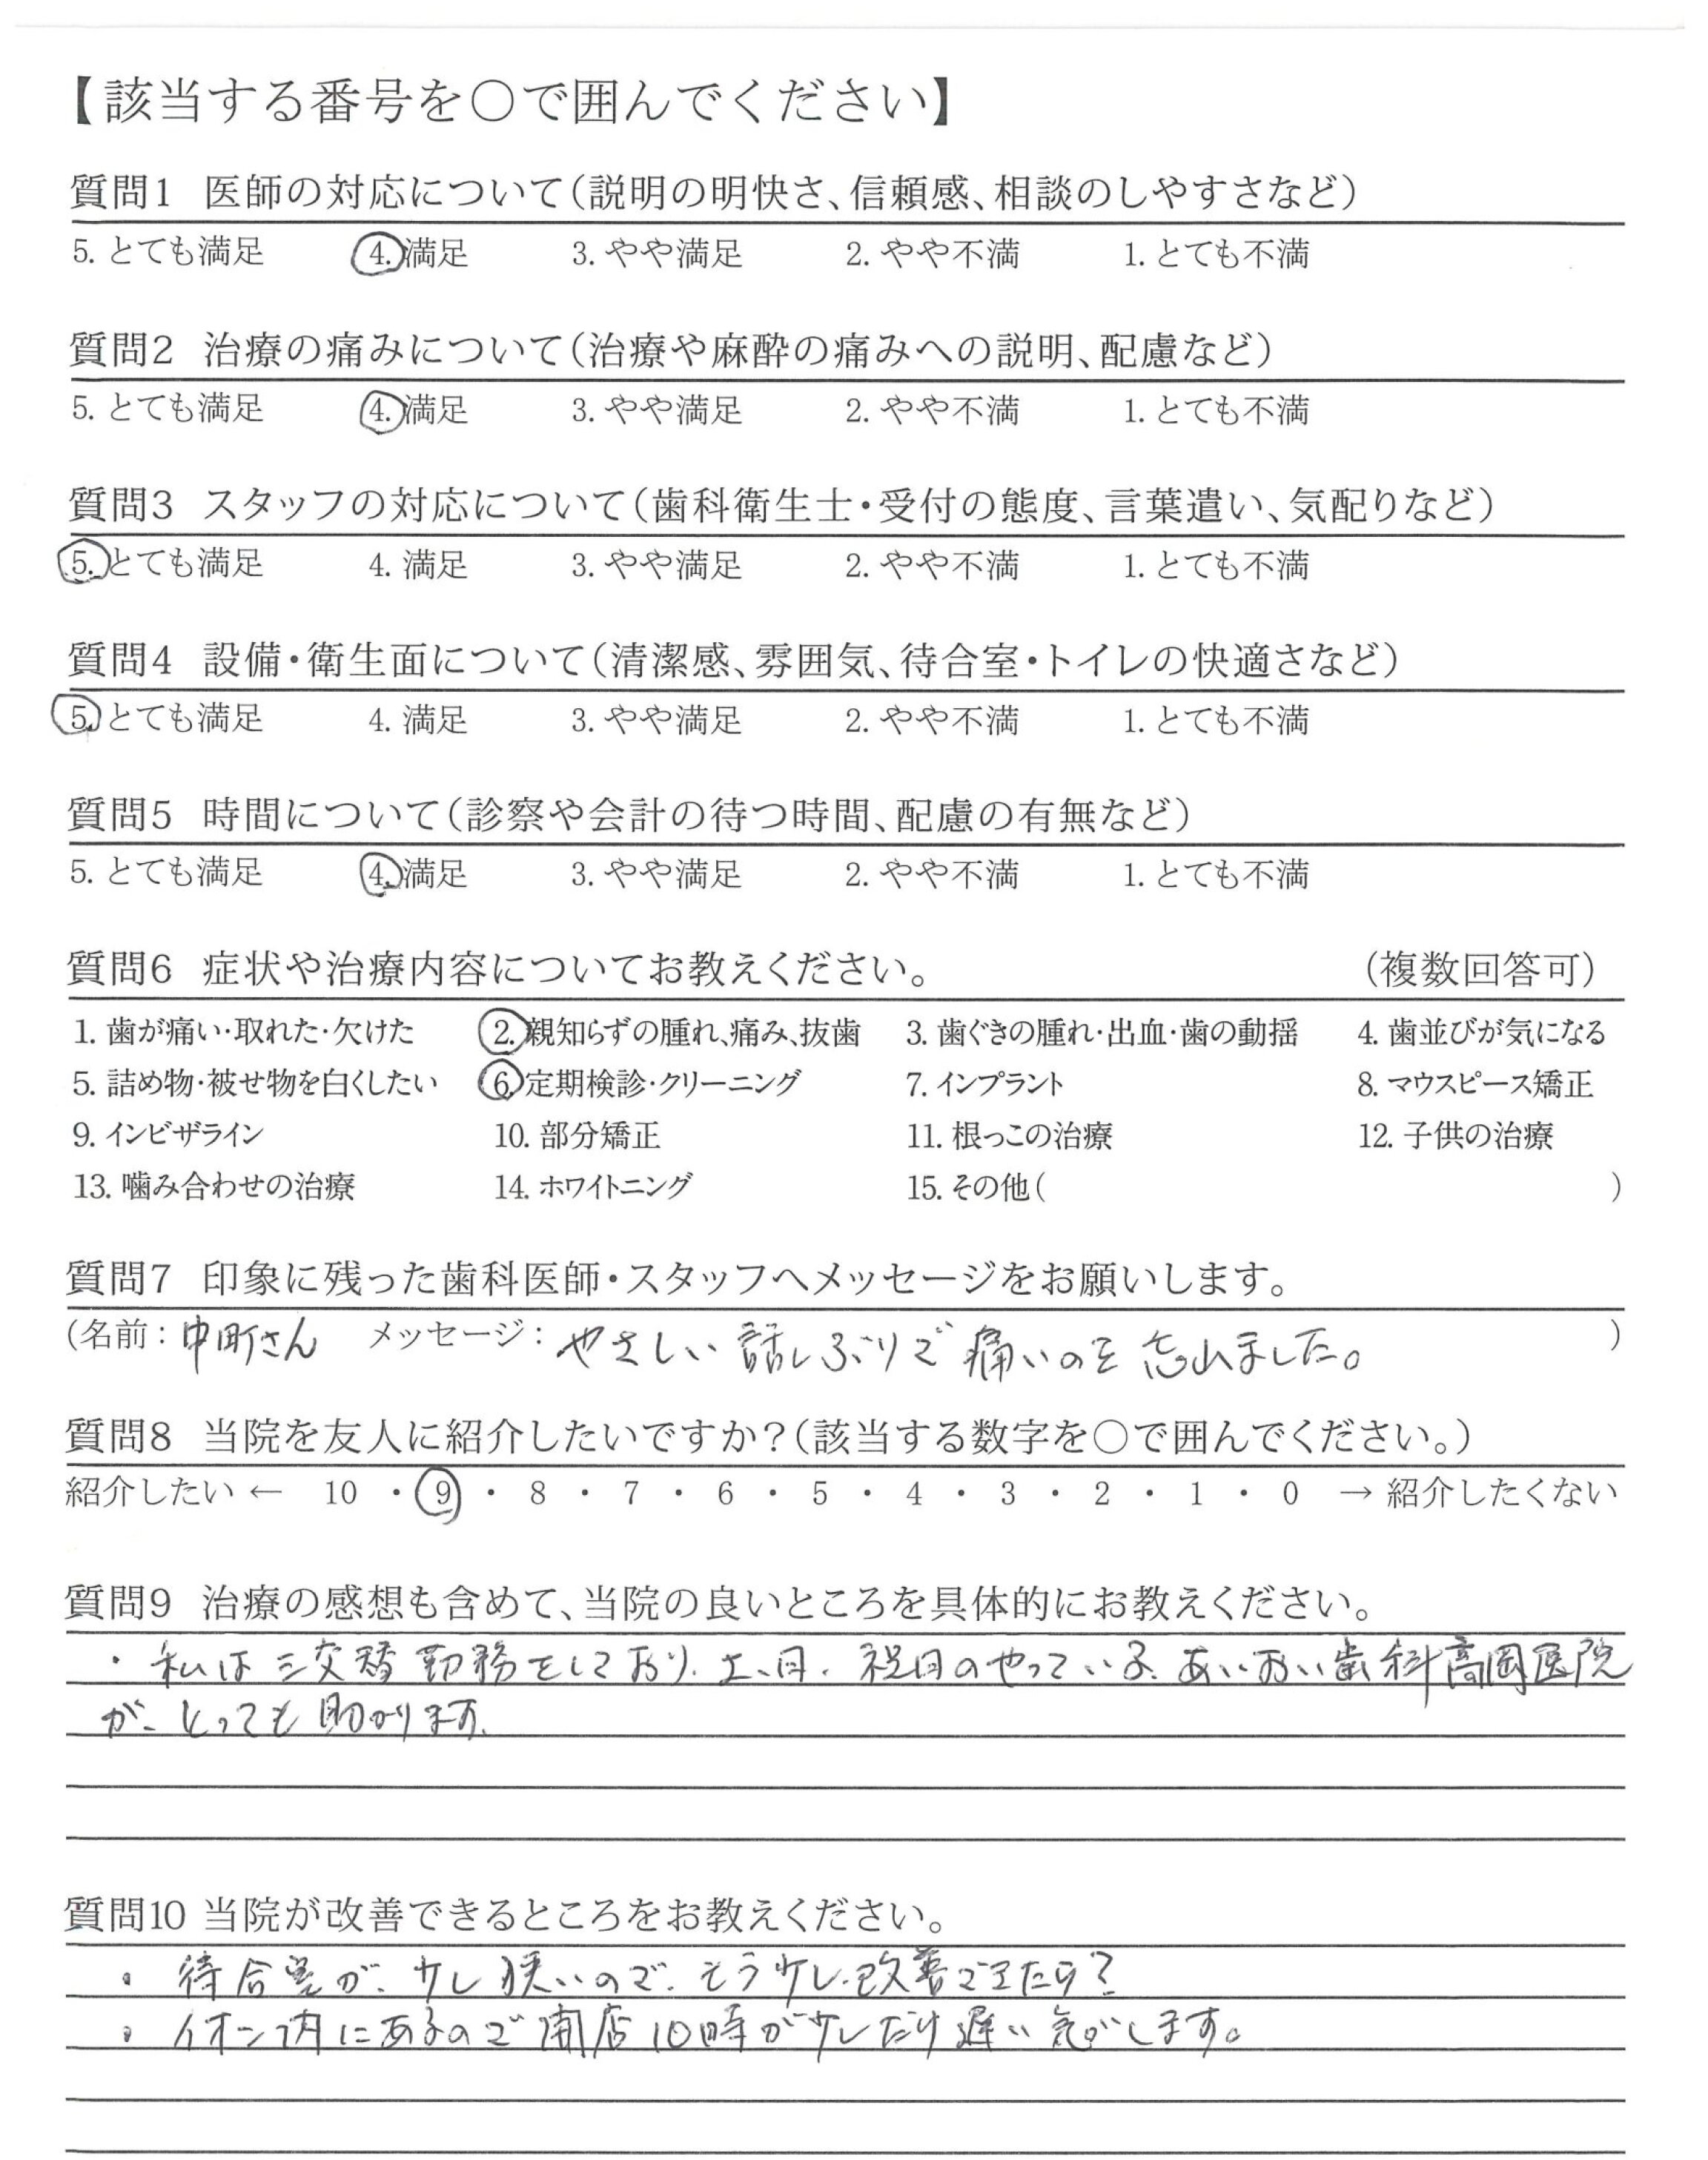 【該当する番号を○で囲んでください】
質問1 医師の対応について(説明の明快さ、信頼感、相談のしやすさなど)
5. とても満足 4. 満足 3. やや満足 2. やや不満 1. とても不満
質問2 治療の痛みについて(治療や麻酔の痛みへの説明、配慮など)
5. とても満足 4. 満足 3. やや満足 2. やや不満 1. とても不満
質問3 スタッフの対応について(歯科衛生士・受付の態度、言葉遣い、気配りなど)
5. とても満足 4. 満足 3. やや満足 2. やや不満 1. とても不満
質問4 設備・衛生面について(清潔感、雰囲気、待合室・トイレの快適さなど)
5. とても満足 4. 満足 3. やや満足 2. やや不満 1. とても不満
質問5 時間について(診察や会計の待つ時間、配慮の有無など)
5. とても満足 4. 満足 3. やや満足 2. やや不満 1. とても不満
質問6 症状や治療内容についてお教えください。 (複数回答可)
1. 歯が痛い・取れた・欠けた 2. 親知らずの腫れ、痛み、抜歯 3. 歯ぐきの腫れ・出血・歯の動揺 4. 歯並びが気になる
5. 詰め物・被せ物を白くしたい 6. 定期検診・クリーニング 7. インプラント 8. マウスピース矯正
9. インビザライン 10. 部分矯正 11. 根っこの治療 12. 子供の治療
13. 噛み合わせの治療 14. ホワイトニング 15. その他( )
質問7 印象に残った歯科医師・スタッフへメッセージをお願いします。
(名前: 中町さん メッセージ: やさしい話しぶりで痛いのを忘れました。 )
質問8 当院を友人に紹介したいですか?(該当する数字を○で囲んでください。)
紹介したい ← 10 ・ 9 ・ 8 ・ 7 ・ 6 ・ 5 ・ 4 ・ 3 ・ 2 ・ 1 ・ 0 → 紹介したくない
質問9 治療の感想も含めて、当院の良いところを具体的にお教えください。
・私は三交替勤務をしており、土、日、祝日のやっている、あいおい歯科高岡医院
が、とっても助かります。
質問10 当院が改善できるところをお教えください。
・待合室が、少し狭いので、もう少し改善できたら?
・イオン内にあるので開店10時が少しだけ遅い気がします。